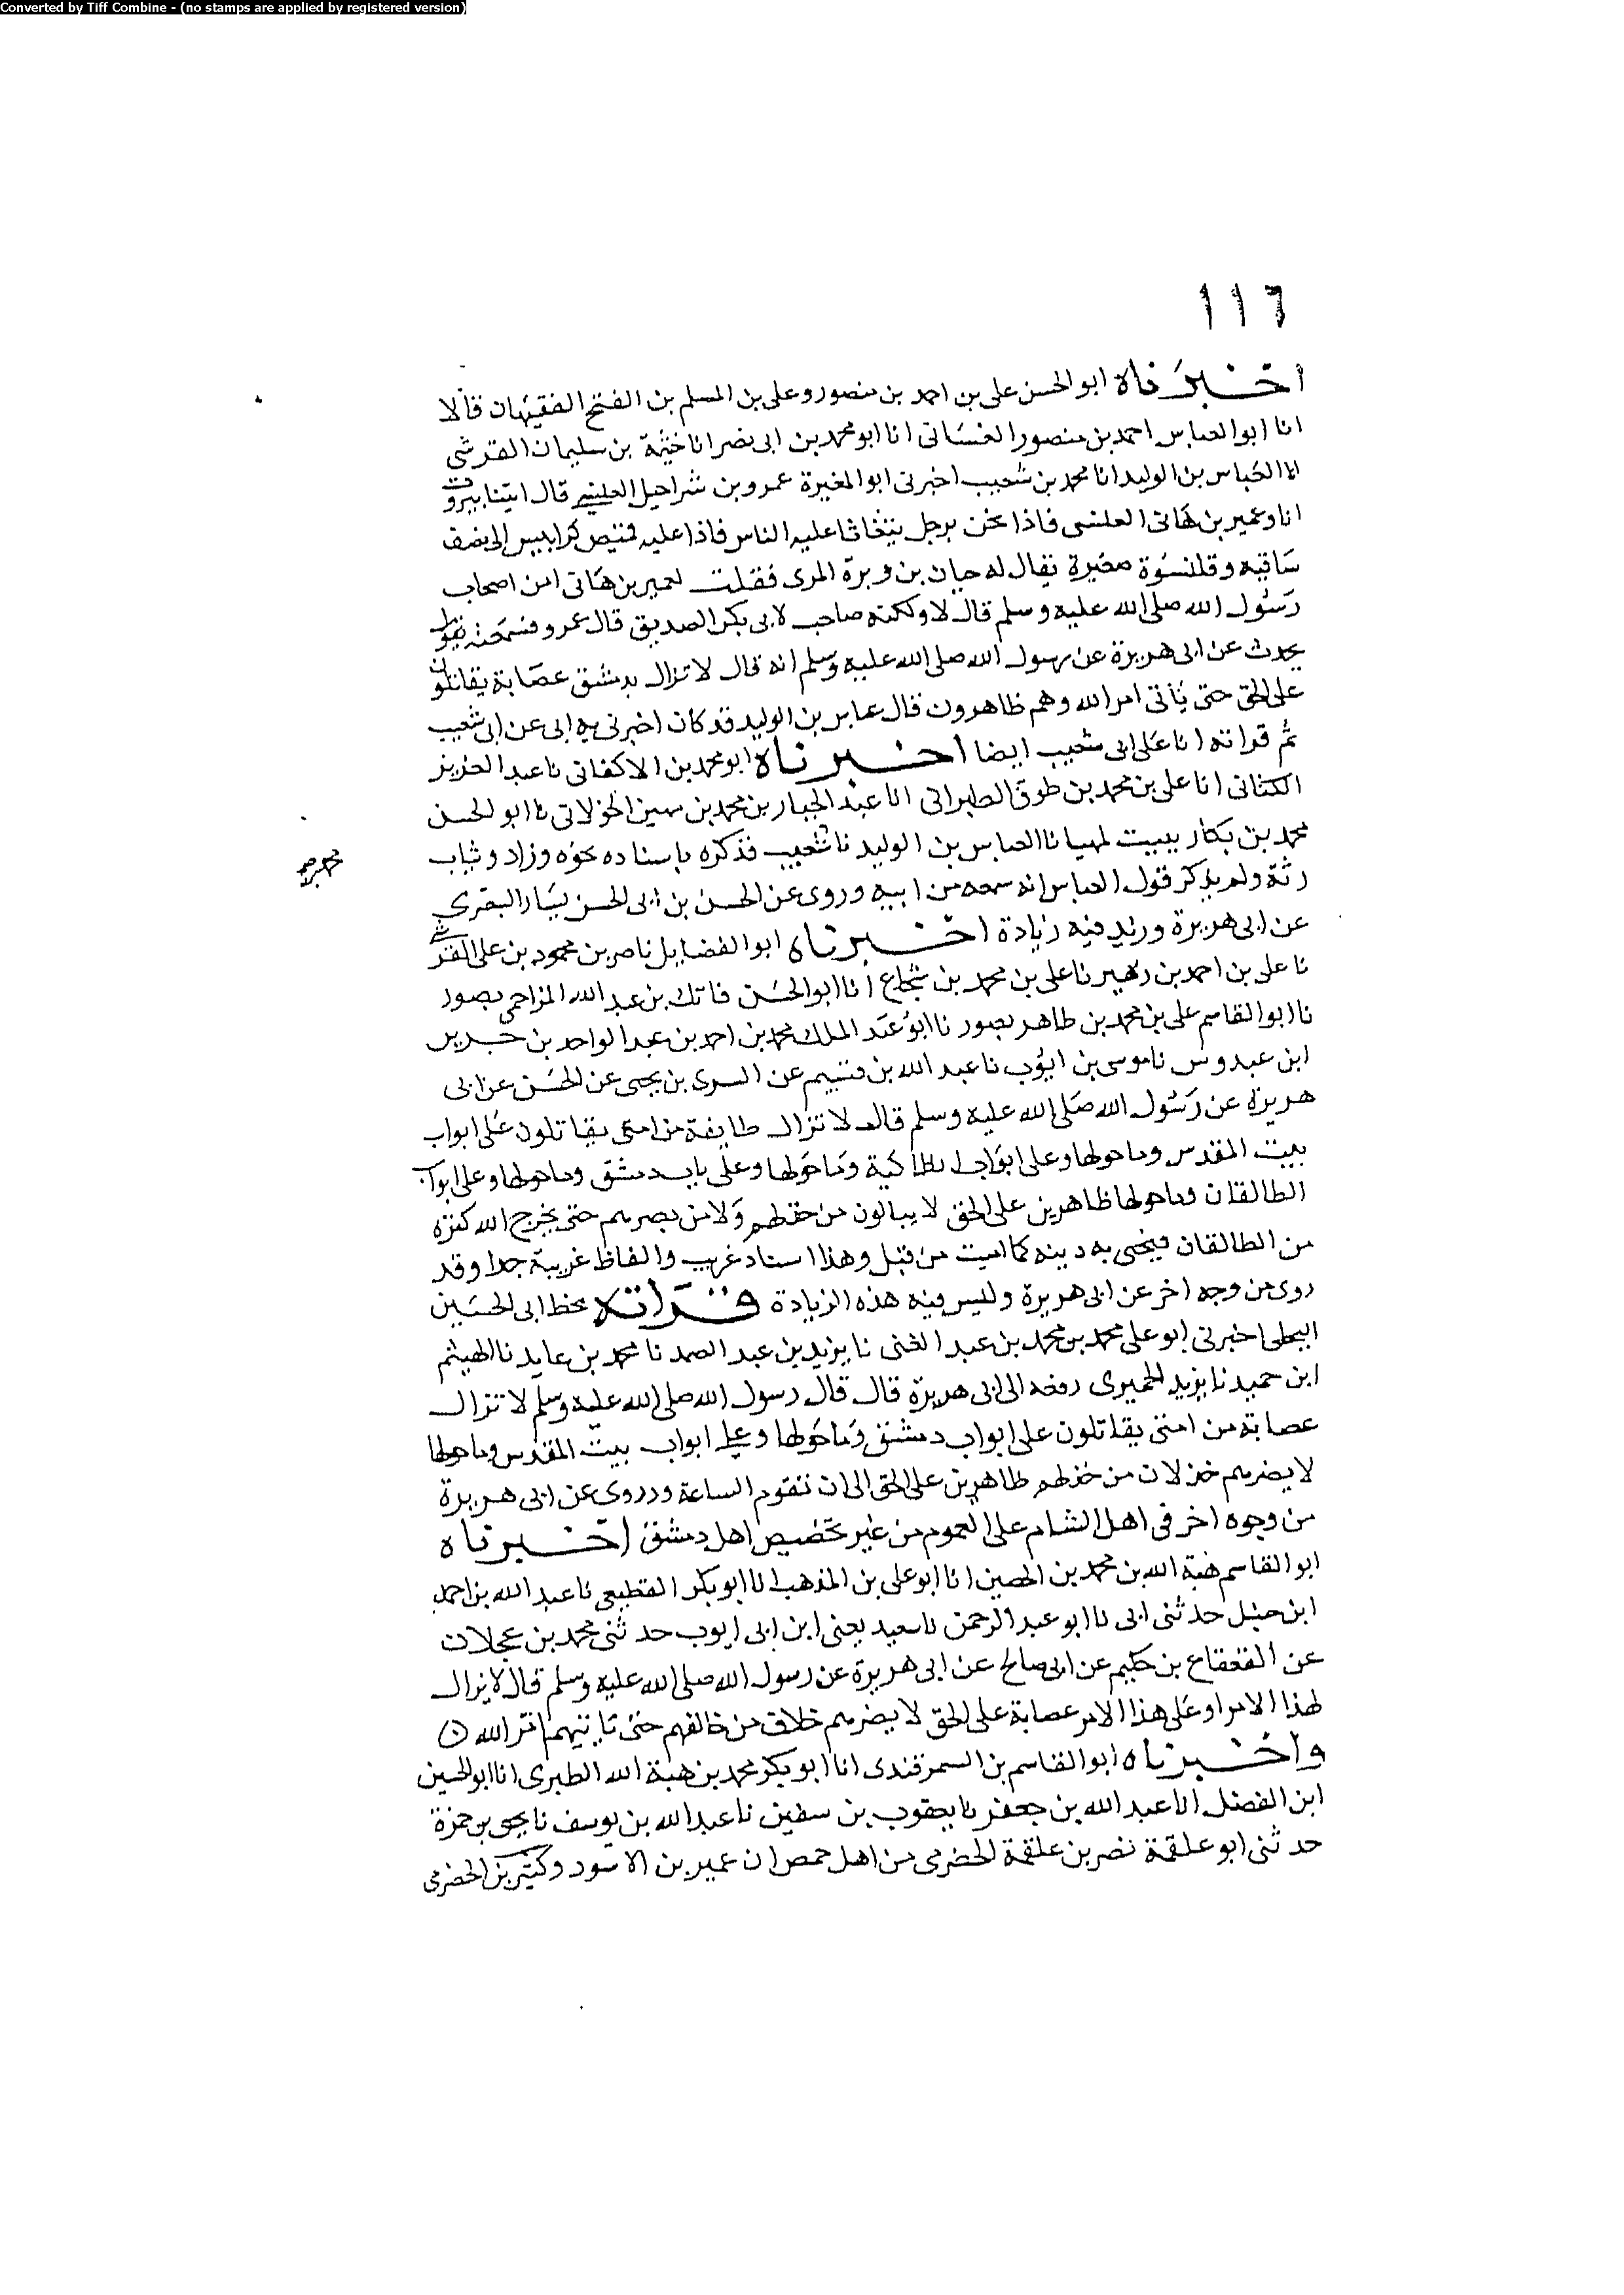 Converted by Tiff Combine - (no stamps are applied by registered version)
١١٦
اخبرناه ابو الحسن على بن احمد بن منصور وعلى بن المسلم بن الفتح الفقيهان قالا
انا ابو العباس احمد بن منصور الغسانى انا ابو محمد بن ابى نصر انا خيثمة بن سليمان القرشى
انا العباس بن الوليد انا محمد بن شعيب اخبرنى ابو المغيرة عمرو بن شراحيل العنسى قال اتينا بيروت
انا وعمير بن هانى العنسى فاذا نحن برجل يتغاثا عليه الناس فاذا عليه قميص كرابيس الى نصف
ساقيه وقلنسوة صغيرة يقال له حيان بن وبرة المرى فقلت لعمير بن هانى امن اصحاب
رسول الله صلى الله عليه وسلم قال لا ولكنه صاحب لابى بكر الصديق قال عمرو فسمعته يقول
يحدث عن ابى هريرة عن رسول الله صلى الله عليه وسلم انه قال لا تزال بدمشق عصابة يقاتلون
على الحق حتى ياتى امر الله وهم ظاهرون قال عباس بن الوليد قد كان اخبرنى به ابى عن ابن شعيب
ثم قراته انا على ابن شعيب ايضا اخبرناه ابو محمد بن الاكفانى نا عبد العزيز
الكتانى انا على بن محمد بن طوق الطبرانى انا عبد الجبار بن محمد بن مهنى الخولانى نا ابو الحسن
محمد بن بكار ببيت لهيا نا العباس بن الوليد نا شعيب فذكره باسناده نحوه وزاد وثياب
رثة ولم يذكر قول العباس انه سمعه من ابيه وروى عن الحسن بن ابى الحسن يسار البصرى
عن ابى هريرة وزيد فيه زيادة اخبرناه ابو الفضايل ناصر بن محمود بن على القرشى
نا على بن احمد بن زهير نا على بن محمد بن شجاع انا ابو الحسن فاتك بن عبد الله المزاحمى بصور
نا ابو القاسم على بن محمد بن طاهر بصور نا ابو عبد الملك محمد بن احمد بن عبد الواحد بن جرير
ابن عبدوس نا موسى بن ايوب نا عبد الله بن قسيم عن السرى بن يحيى عن الحسن عن ابى
هريرة عن رسول الله صلى الله عليه وسلم قال لا تزال طايفة من امتى يقاتلون على ابواب
بيت المقدس وما حولها وعلى ابواب انطاكية وما حولها وعلى باب دمشق وما حولها وعلى ابواب
الطالقان وما حولها ظاهرين على الحق لا يبالون من خذلهم ولا من نصرهم حتى يخرج الله كنزه
من الطالقان فيحيى به دينه كما اميت من قبل وهذا اسناد غريب والفاظ غريبة جدا وقد
روى من وجه اخر عن ابى هريرة وليس فيه هذه الزيادة قراته بخط ابى الحسين
اخبرنى ابو على محمد بن محمد بن عبد الغنى نا يزيد بن عبد الصمد نا محمد بن عايد نا الهيثم
ابن حميد نا يزيد الحميرى رفعه الى ابى هريرة قال قال رسول الله صلى الله عليه وسلم لا تزال
عصابة من امتى يقاتلون على ابواب دمشق وما حولها وعلى ابواب بيت المقدس وما حولها
لا يضرهم خذلان من خذلهم ظاهرين على الحق الى ان تقوم الساعة وروى عن ابى هريرة
من وجوه اخر فى اهل الشام على العموم من غير تخصيص اهل دمشق اخبرناه
ابو القاسم هبة الله بن محمد بن الحصين انا ابو على بن المذهب انا ابو بكر القطيعى نا عبد الله بن احمد
ابن حنبل حدثنى ابى نا ابو عبد الرحمن نا سعيد يعنى ابن ابى ايوب حدثنى محمد بن عجلان
عن القعقاع بن حكيم عن ابى صالح عن ابى هريرة عن رسول الله صلى الله عليه وسلم قال لا يزال
لهذا الامر او على هذا الامر عصابة على الحق لا يضرهم خلاف من خالفهم حتى تاتيهم امر الله
واخبرناه ابو القاسم بن السمرقندى انا ابو بكر محمد بن هبة الله الطبرى انا ابو الحسين
ابن الفضل انا عبد الله بن جعفر نا يعقوب بن سفين نا عبد الله بن يوسف نا يحيى بن حمزة
حدثنى ابو علقمة نصر بن علقمة الحضرمى من اهل حمص ان عمير بن الاسود وكثير بن الحضرمى